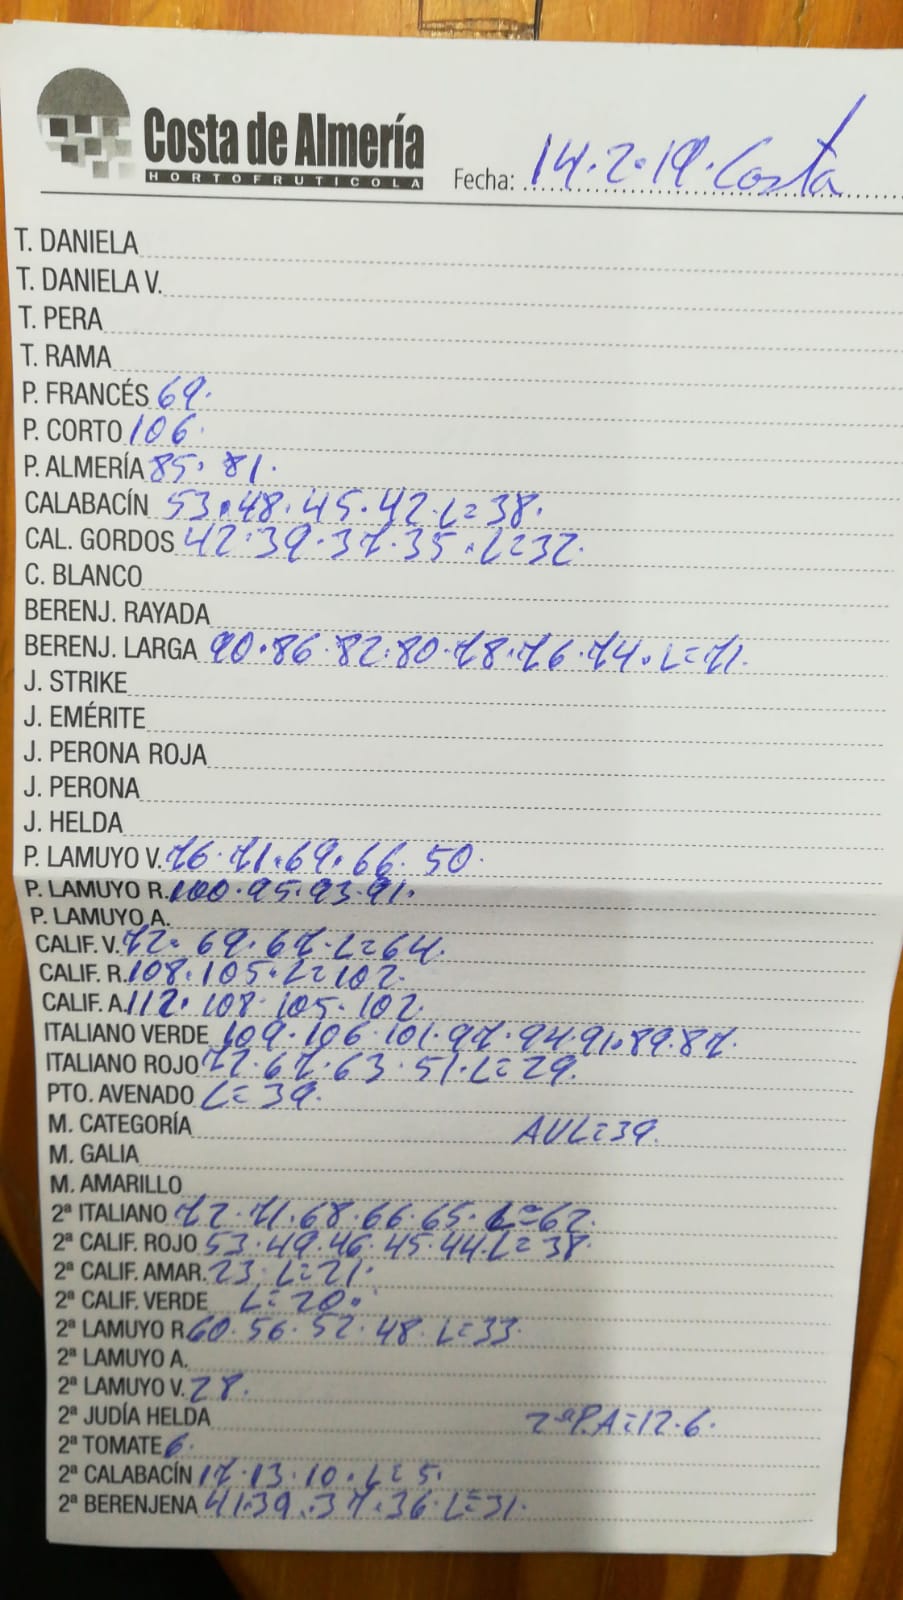 Costa de Almería
HORTOFRUTICOLA
Fecha: 14.2.19. Costa
T. DANIELA
T. DANIELA V.
T. PERA
T. RAMA
P. FRANCÉS 69.
P. CORTO 106.
P. ALMERÍA 85. 81.
CALABACÍN 53.48.45.42.L=38.
CAL. GORDOS 42.39.37.35.L=32.
C. BLANCO
BERENJ. RAYADA
BERENJ. LARGA 90.86.82.80.78.76.74.L=71.
J. STRIKE
J. EMÉRITE
J. PERONA ROJA
J. PERONA
J. HELDA
P. LAMUYO V. 76.71.69.66.50.
P. LAMUYO R. 100.95.93.91.
P. LAMUYO A.
CALIF. V. 72.69.67.L=64.
CALIF. R. 108.105.L=102.
CALIF. A. 112.108.105.102.
ITALIANO VERDE 109.106.101.97.94.91.89.87.
ITALIANO ROJO 72.67.63.51.L=29.
PTO. AVENADO L=39.
M. CATEGORÍA AVL=39.
M. GALIA
M. AMARILLO
2ª ITALIANO 72.71.68.66.65.L=62.
2ª CALIF. ROJO 53.49.46.45.44.L=38.
2ª CALIF. AMAR. 23.L=21.
2ª CALIF. VERDE L=20.
2ª LAMUYO R. 60.56.52.48.L=33.
2ª LAMUYO A.
2ª LAMUYO V. 28.
2ª JUDÍA HELDA 2ªP.A=12.6.
2ª TOMATE 6.
2ª CALABACÍN 17.13.10.L=5.
2ª BERENJENA 41.39.37.36.L=31.